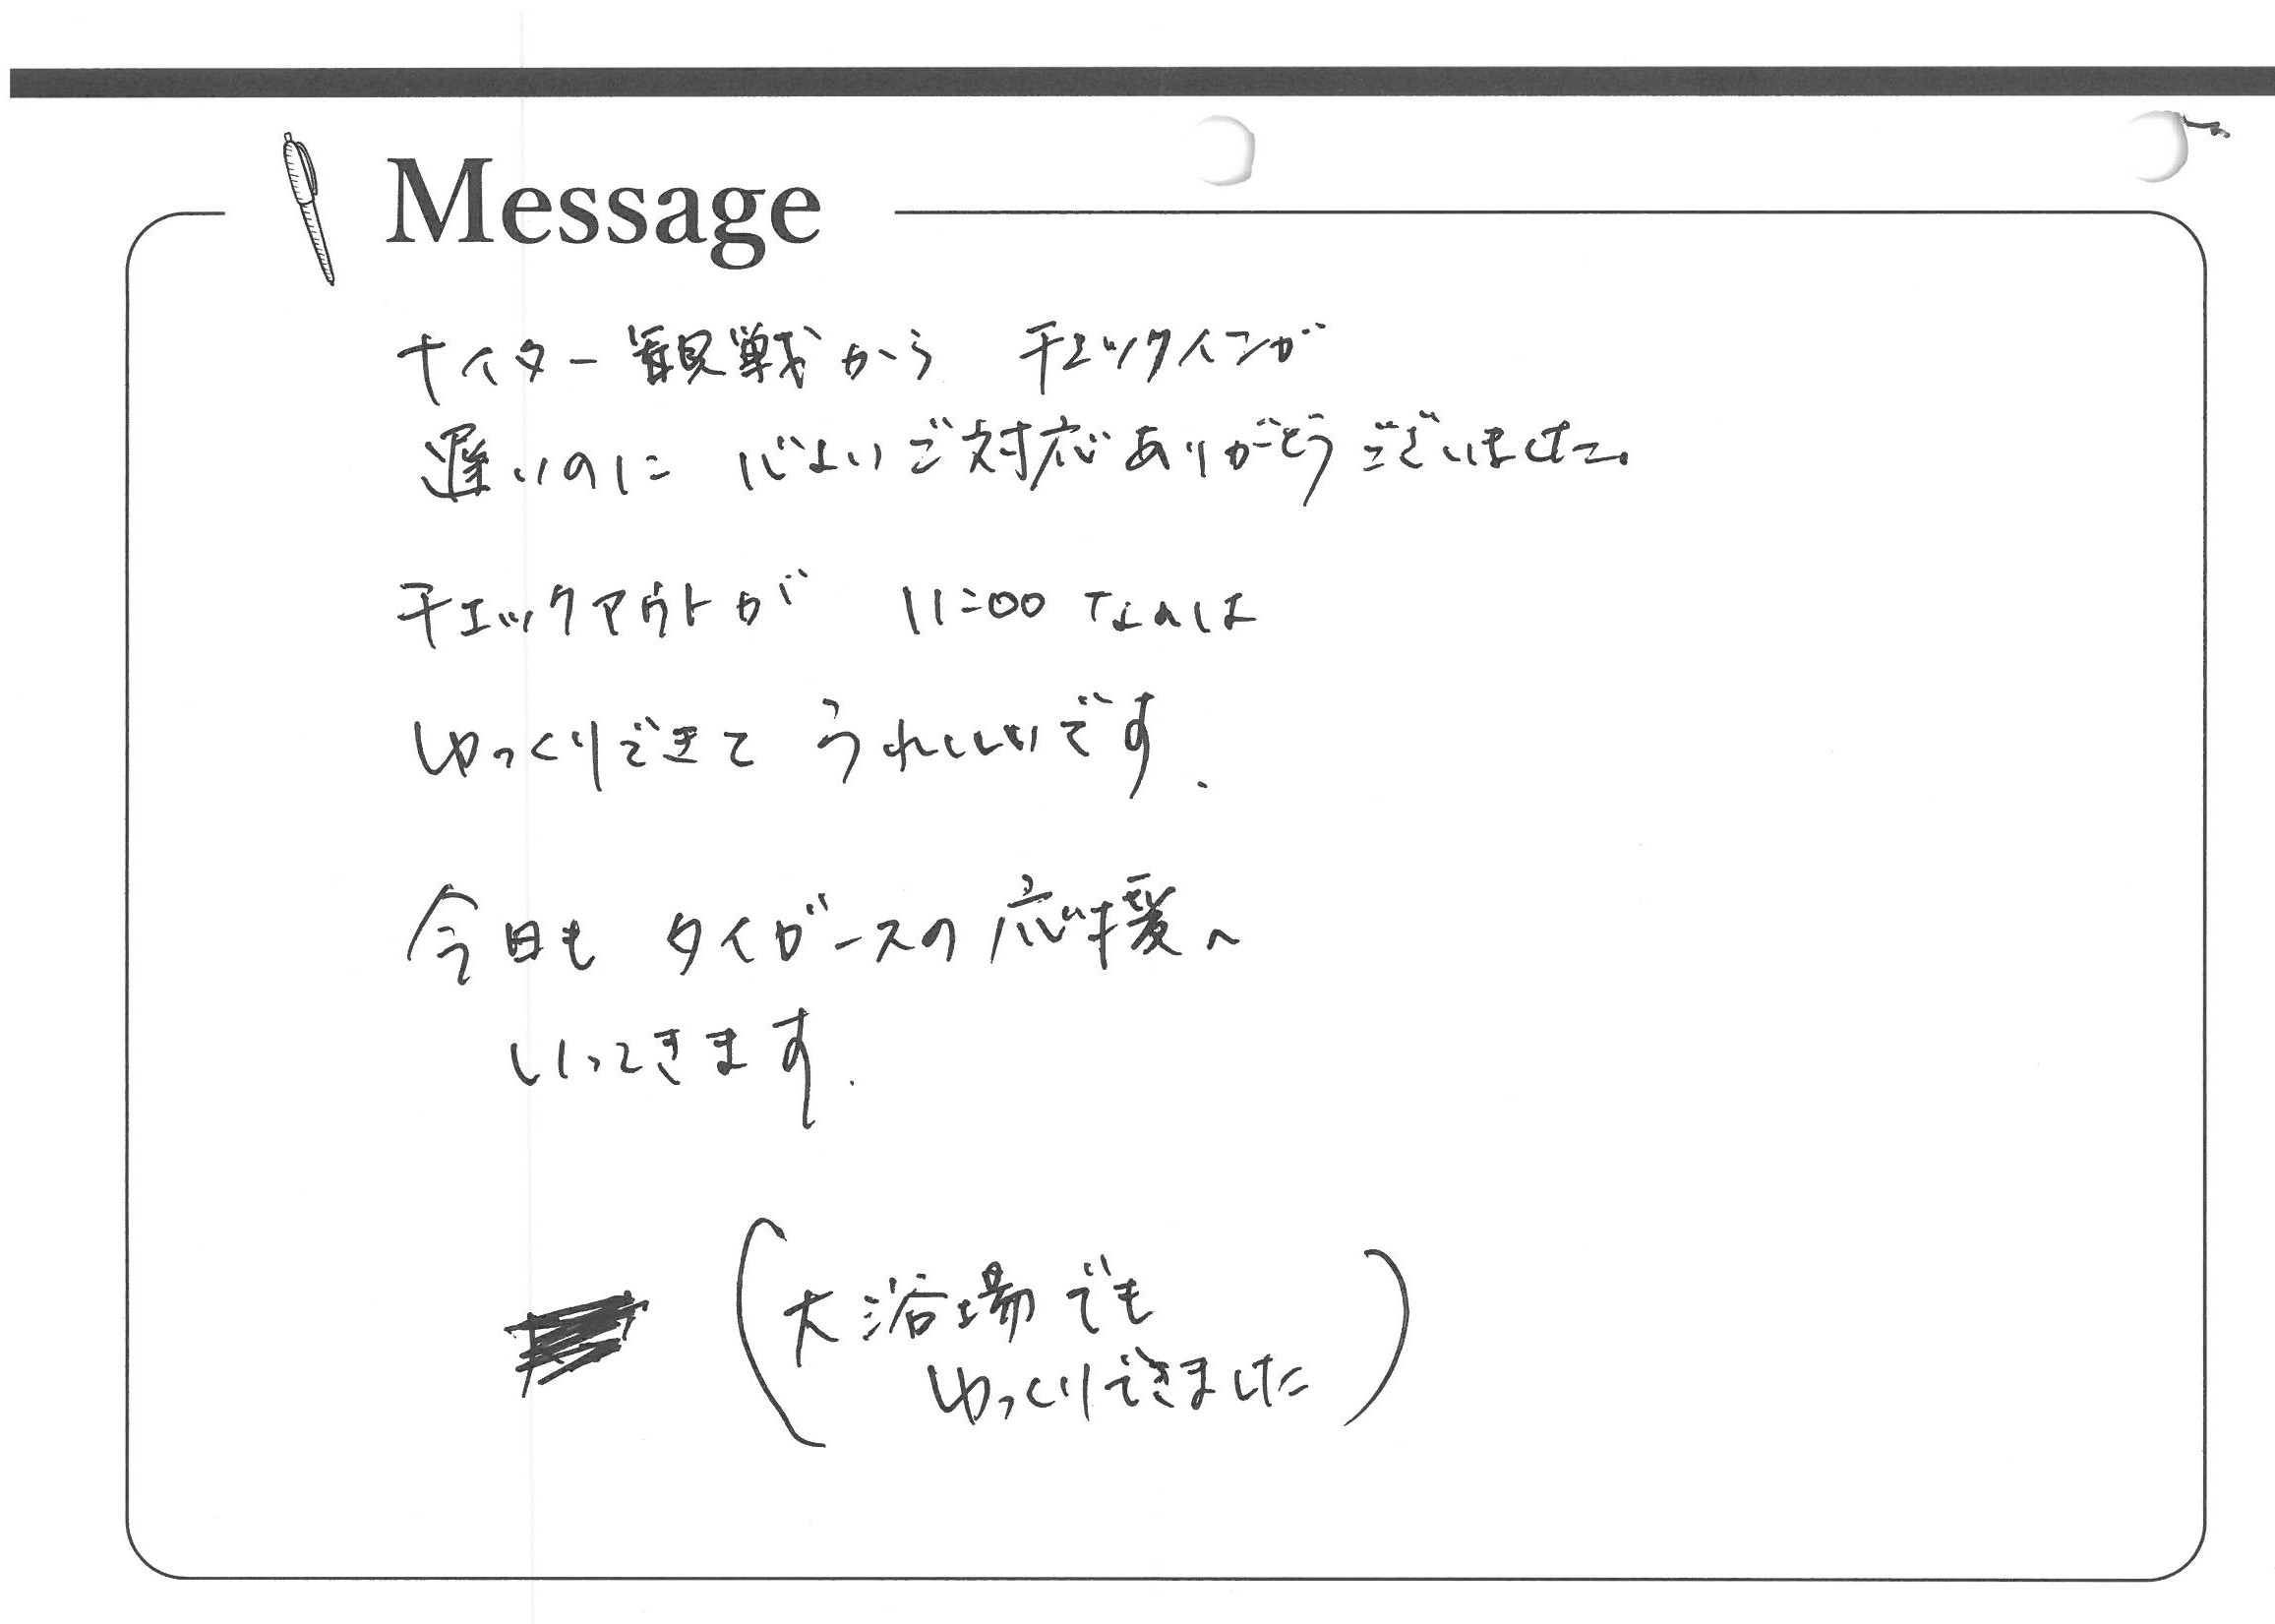 Message
ナイター観戦から チェックインが
遅いのに 心よいご対応ありがとうございました。
チェックアウトが 11:00 なのは
ゆっくりできて うれしいです.
今日も タイガースの応援へ
いってきます.
(大浴場でも
ゆっくりできました)